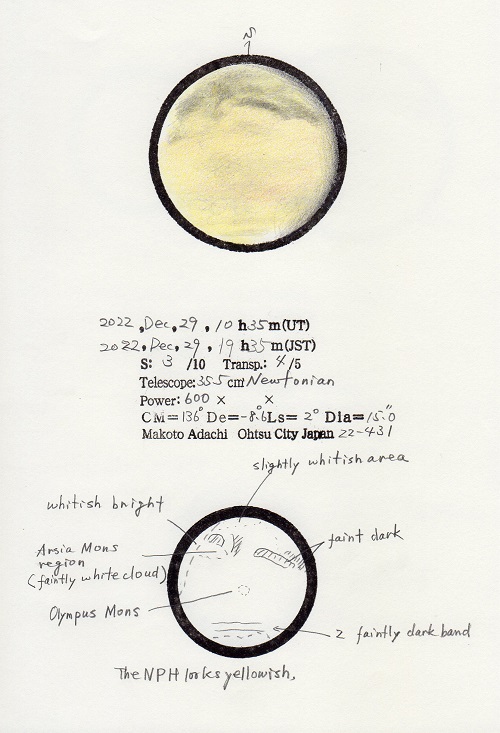 N
2022, Dec, 29, 10 h 35 m (UT)
2022, Dec, 29, 19 h 35 m (JST)
S: 3 /10 Transp.: 4/5
Telescope: 35.5 cm Newtonian
Power: 600 × ×
CM= 136° De= -8.6° Ls= 2° Dia= 15.″0
Makoto Adachi Ohtsu City Japan 22-431
slightly whitish area
whitish bright
faint dark
Arsia Mons
region
(faintly white cloud)
Olympus Mons
2 faintly dark band
The NPH looks yellowish,